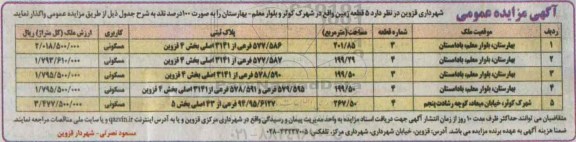 آگهی مزایده عمومی
شهرداری قزوین در نظر دارد ۵ قطعه زمین واقع در شهرک کوثر و بلوار معلم - بهارستان را به صورت ۱۰۰درصد نقد به شرح جدول ذیل از طریق مزایده عمومی واگذار نماید.
ردیف موقعیت ملک شماره قطعه مساحت(مترمربع) پلاک ثبتی کاربری ارزش ملک (کل متراژ) ریال
۱ بهارستان، بلوار معلم - باغستان ۳ ۲۰۱/۸۵ ۵۷۷/۵۸۶ فرعی از ۳۱۳۱ اصلی بخش ۴ قزوین مسکونی ۲/۰۱۸/۵۰۰/۰۰۰
۲ بهارستان، بلوار معلم ۴ ۱۹۹/۲۹ ۵۷۷/۵۸۷ فرعی از ۳۱۳۱ اصلی بخش ۴ قزوین مسکونی ۱/۷۹۳/۶۱۰/۰۰۰
۳ بهارستان، بلوار معلم ۳ ۱۹۹/۵۰ ۵۷۸/۵۹۰ فرعی از ۳۱۳۱ اصلی بخش ۴ قزوین مسکونی ۱/۷۹۵/۵۰۰/۰۰۰
۴ بهارستان، بلوار معلم ۴ ۱۹۹/۵۰ ۵۷۹/۵۹۵ فرعی و ۵۷۸/۵۹۱ فرعی از ۳۱۳۱ اصلی بخش ۴ قزوین مسکونی ۱/۷۹۵/۵۰۰/۰۰۰
۵ شهرک کوثر، خیابان میعاد، کوچه رشادت پنجم ۴ ۲۶۷/۵۰ ۹۲/۹۵/۶۱۲۷ فرعی از ۲۳ اصلی بخش ۵ مسکونی ۳/۴۷۷/۵۰۰/۰۰۰
متقاضیان می توانند حداکثر ظرف مدت ۱۰ روز از زمان انتشار آگهی جهت دریافت اسناد مزایده به واحد مدیریت پیمان و رسیدگی واقع در شهرداری مرکزی قزوین و یا به آدرس اینترنت qazvin.ir و یا سایت ملی مناقصات مراجعه نمایند.
ضمنا هزینه آگهی به عهده برنده مزایده می باشد. آدرس: قزوین، خیابان شهرداری، شهرداری مرکز، تلفکس:
مسعود نصرتی - شهردار قزوین